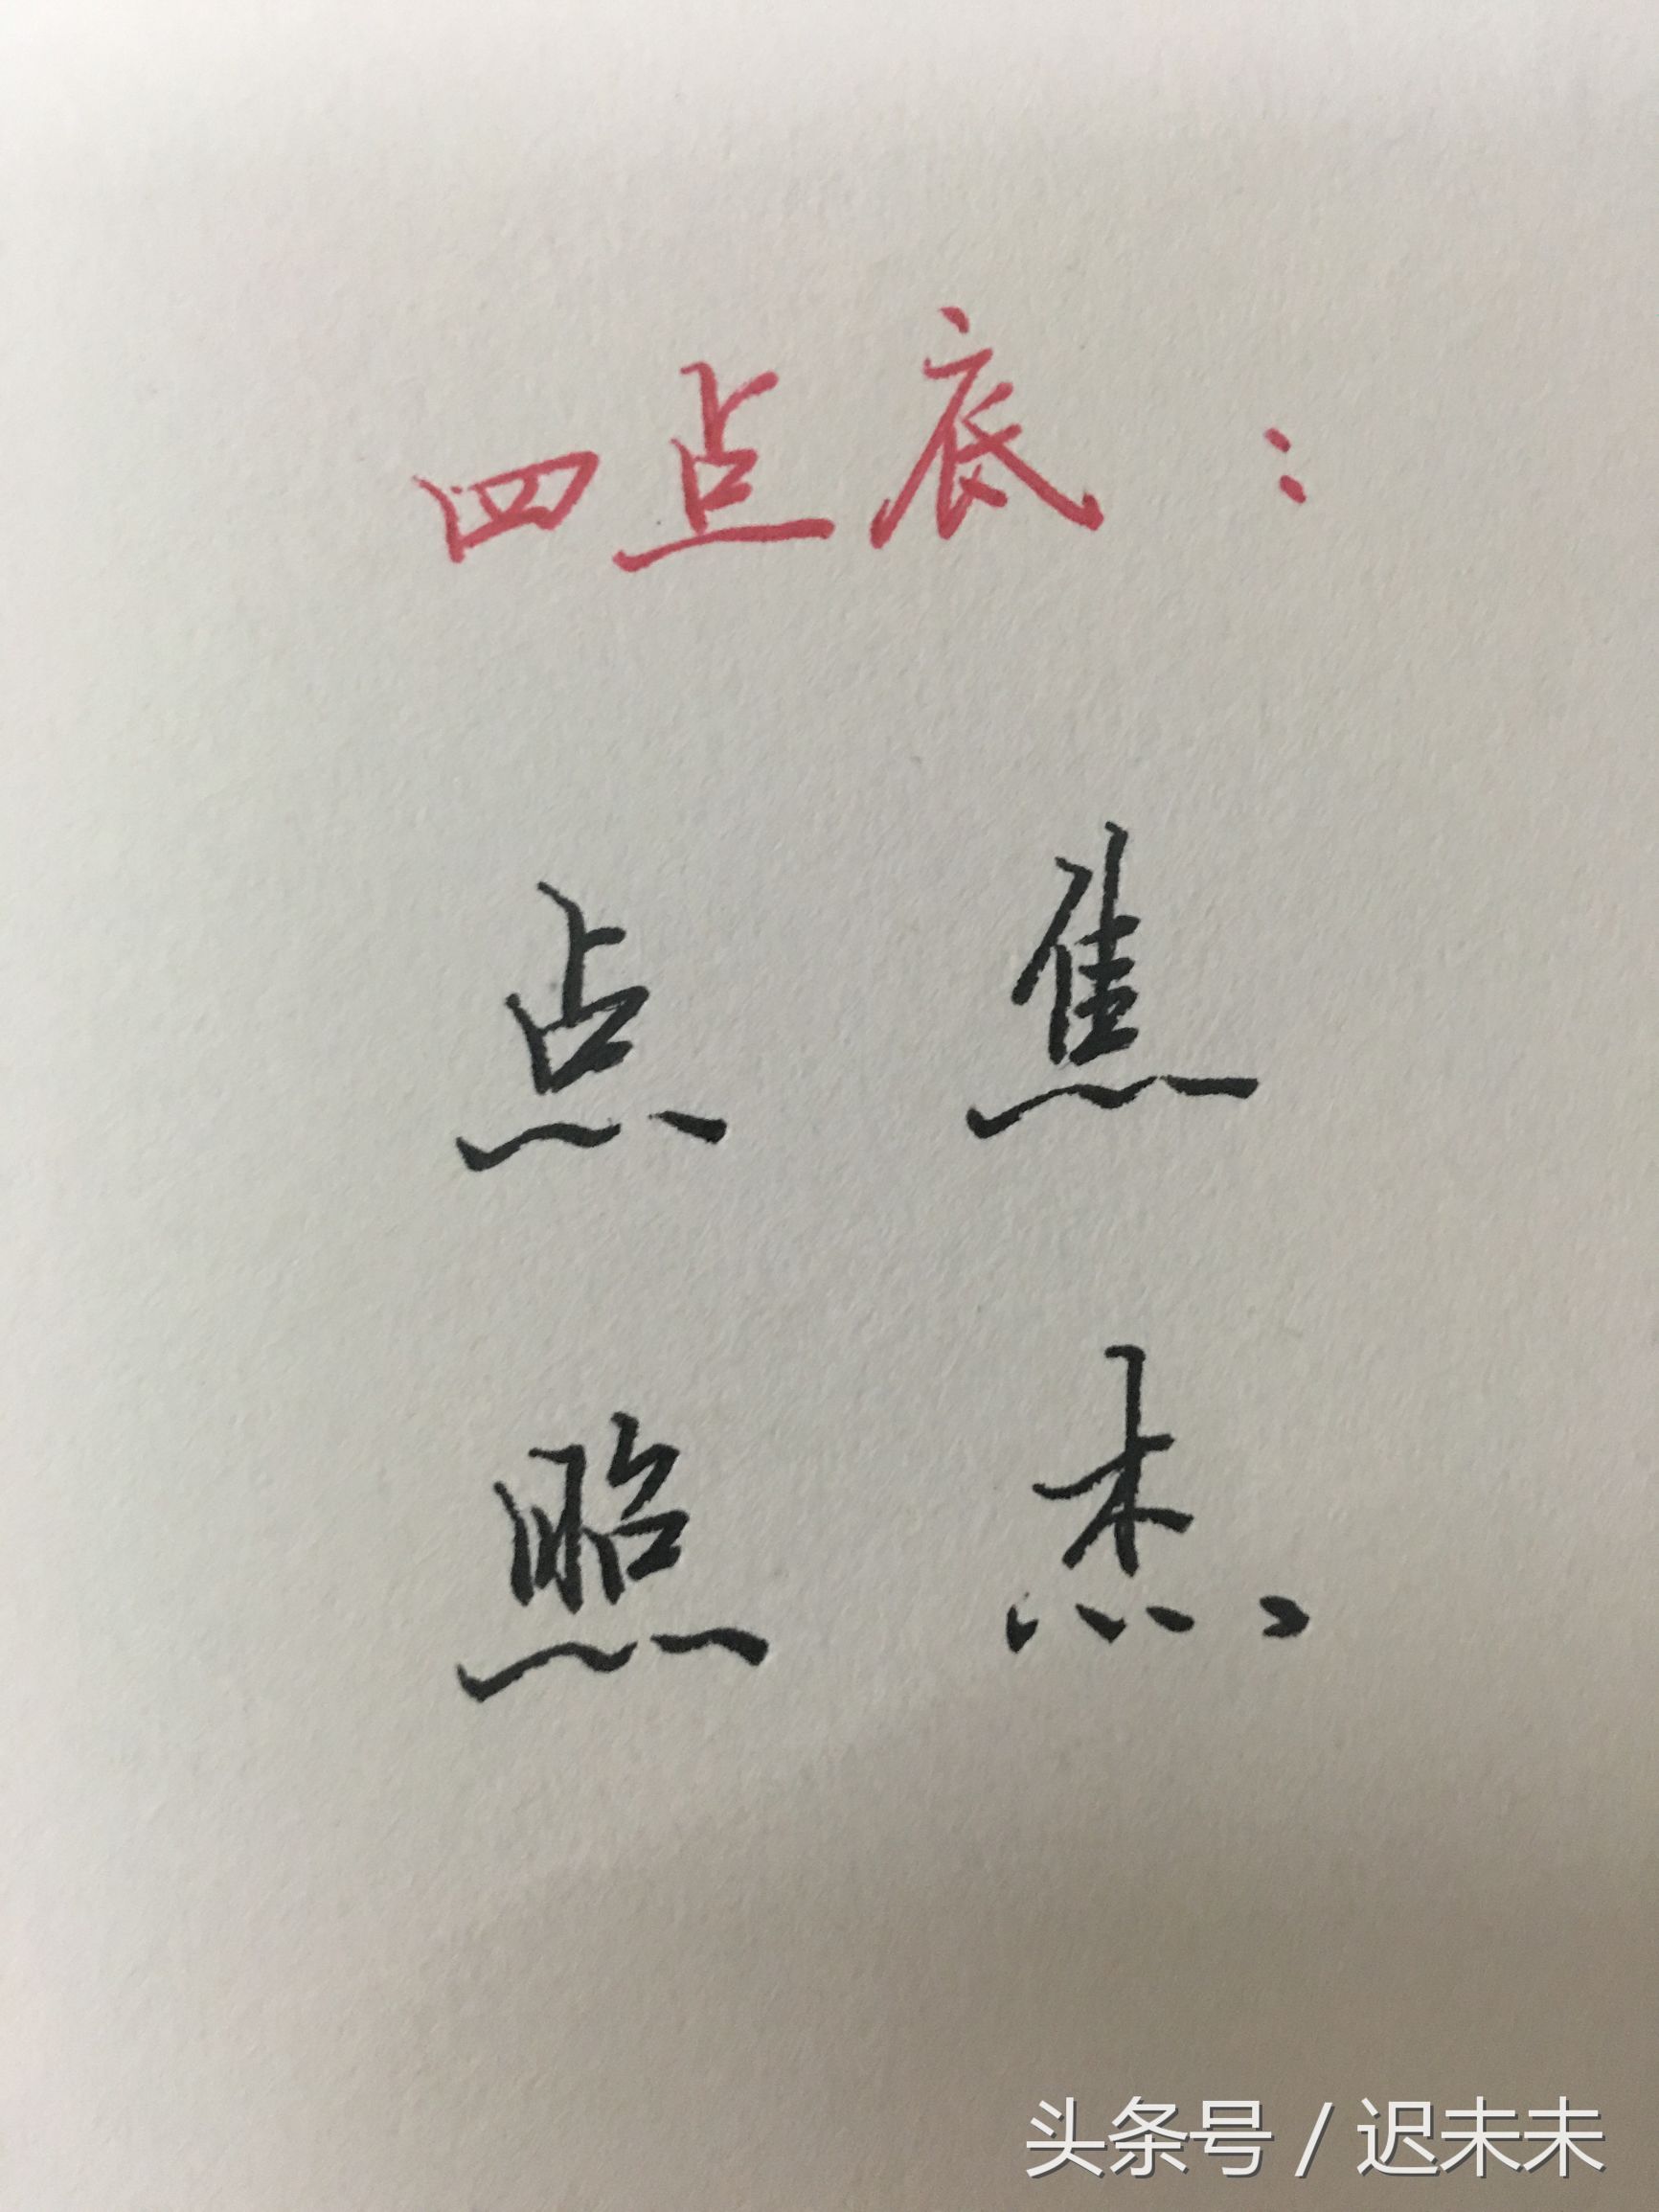 四点底：
点 焦
照 杰
头条号 / 迟未未